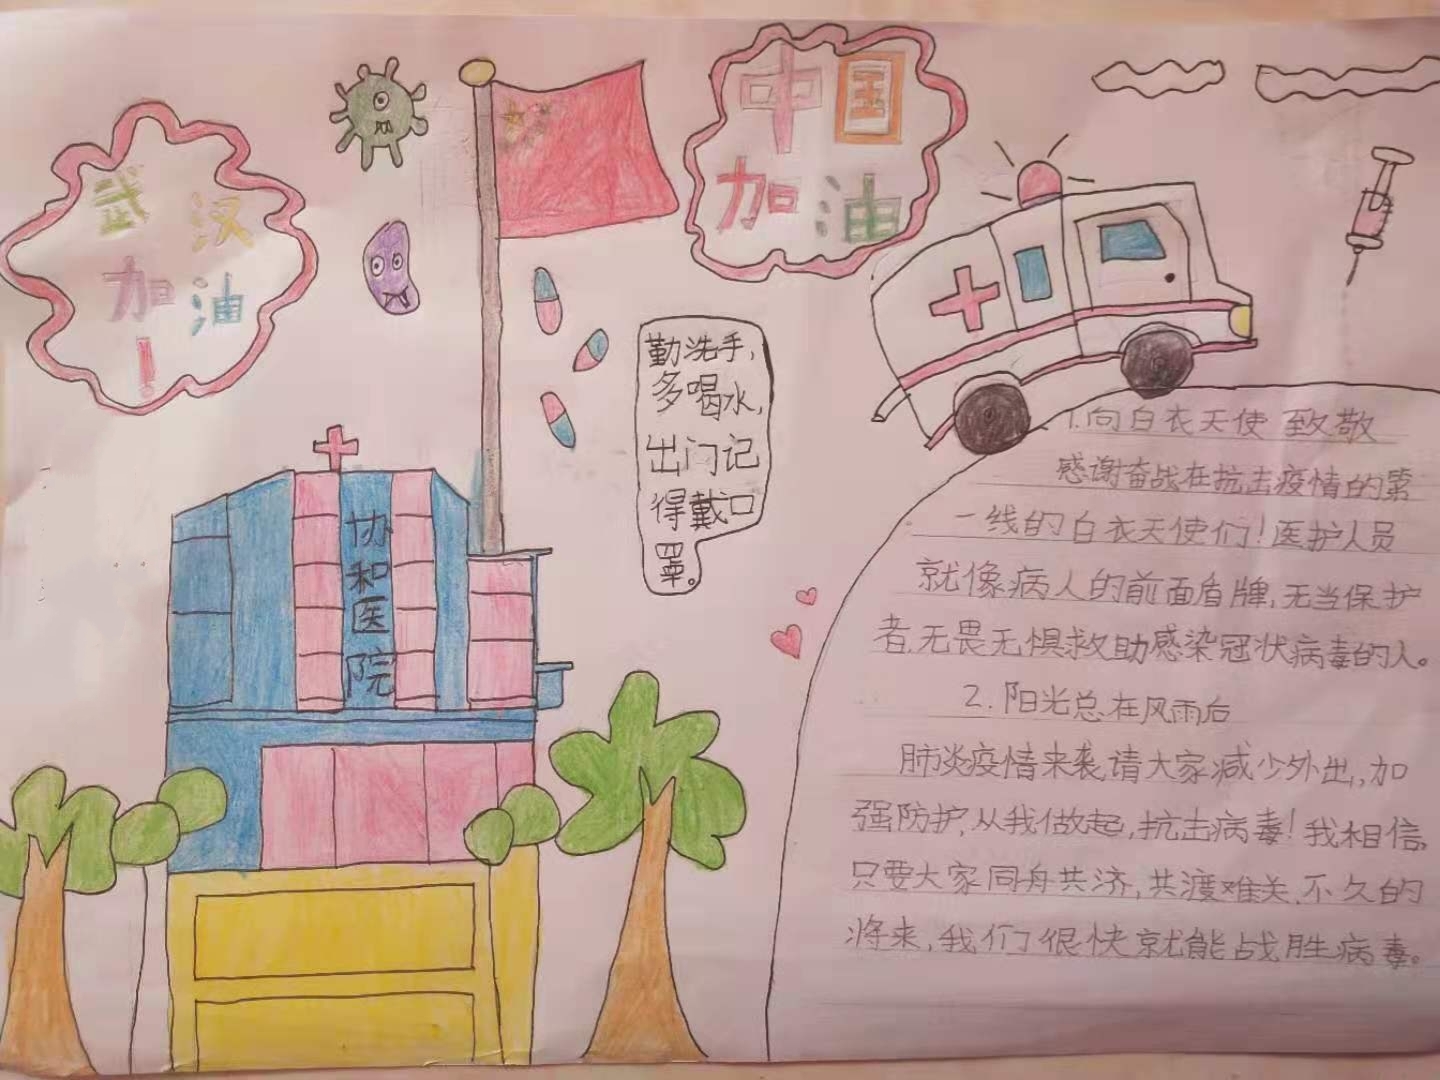 武汉
加油
!
中国
加油
勤洗手,
多喝水,
出门记
得戴口
罩。
协
和
医
院
1.向白衣天使 致敬
感谢奋战在抗击疫情的第
一线的白衣天使们!医护人员
就像病人的前面盾牌,无当保护
者,无畏无惧救助感染冠状病毒的人。
2.阳光总在风雨后
肺炎疫情来袭,请大家减少外出,加
强防护,从我做起,抗击病毒!我相信,
只要大家同舟共济,共渡难关,不久的
将来,我们很快就能战胜病毒。